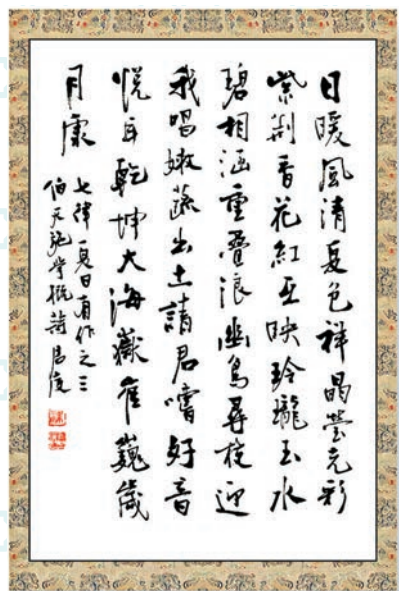 日暖風清夏色祥晶莹光彩
紫荆香花紅互映玲瓏玉水
碧相涵重疊浪幽鳥尋枝迎
我唱嫩蔬出土請君嚐好音
悦耳乾坤大海嶽崔巍歲
月康
七律夏日有作之三
伯天施学概蒋昌俊